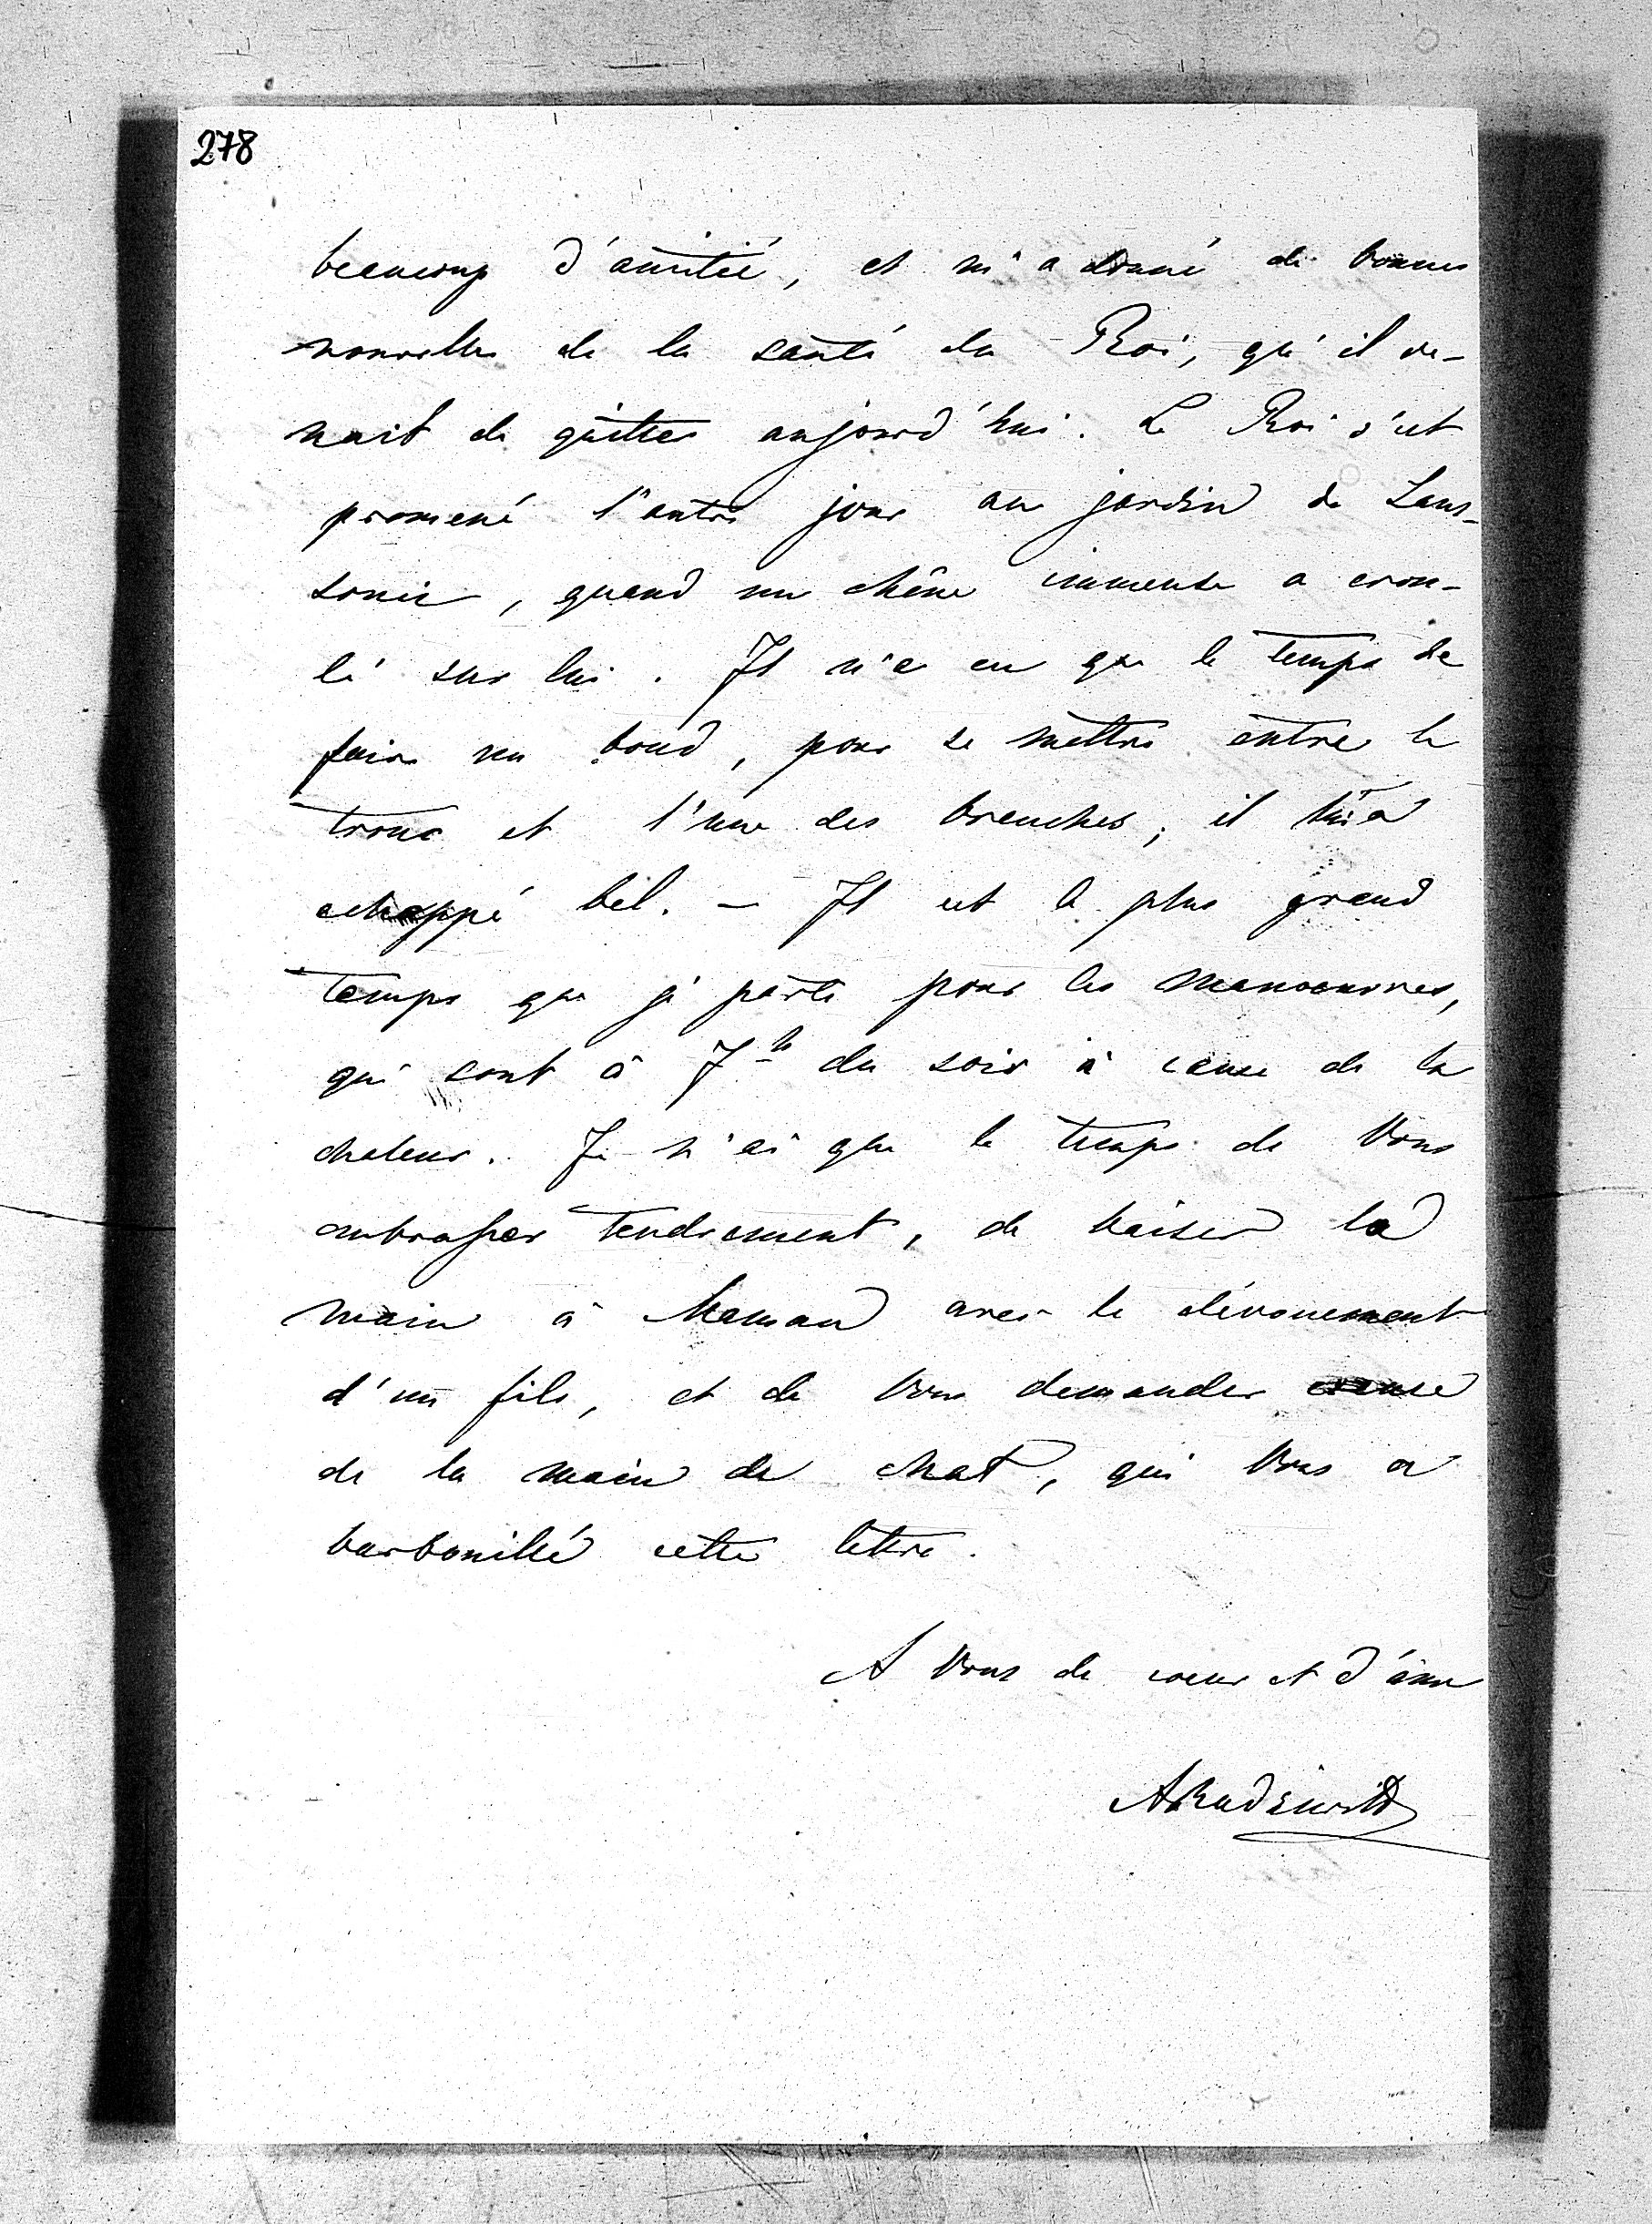 278
beaucoup d'amitié, et m'a donné de bonnes
nouvelles de la santé du Roi, qu'il ve-
nait de quitter aujourd'hui. Le Roi s'est
promené l'autre jour au jardin de Sans-
souci, quand un chêne immense a crou-
lé sur lui. Il n'a eu que le temps de
faire un bond, pour se mettre entre le
tronc et l'une des branches; il l'a
echappé bel. — Il est le plus grand
temps que je parte pour les manoeuvres,
qui sont à 7h du soir à cause de la
chaleur. Je n'ai que le temps de Vous
embrasser tendrement, de baiser la
main à Maman avec le dévouement
d'un fils, et de Vous demander excuse
de la main de chat, qui Vous a
barbouillé cette lettre.
A Vous de coeur et d'âme
ARadziwill